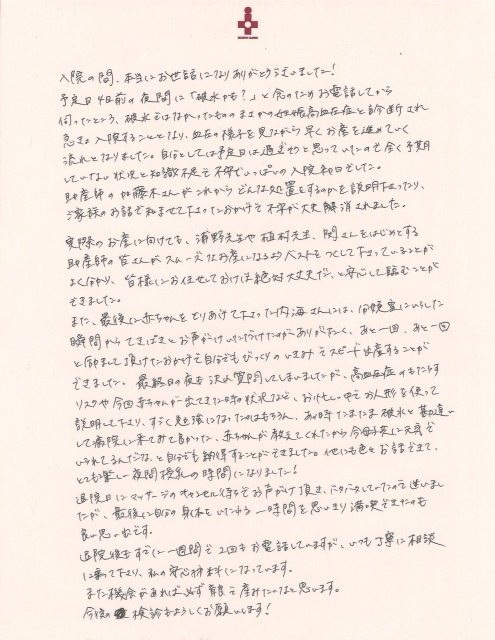 入院の間、本当にお世話になりありがとうございました!
予定日4日前の夜間に「破水かも?」と念のためお電話してから
伺ったところ、破水ではなかったもののまさかの妊娠高血圧症と診断され
急きょ入院することとなり、血圧の様子を見ながら早くお産を進めていく
流れとなりました。自分としては予定日は過ぎそうと思っていたので全く予期
していない状況と知識不足で不安でいっぱいの入院初日でした。
助産師の加藤木さんがこれからどんな処置をするのかを説明下さったり、
ご家族のお話で和ませて下さったおかげで不安が大変解消されました。
実際のお産に向けても、浦野先生や植村先生、関さんをはじめとする
助産師の皆さんがスムーズなお産になるようベストをつくして下さっていることが
よく分かり、皆様にお任せしておけば絶対大丈夫だ、と安心して臨むことが
できました。
また、最後に赤ちゃんをとりあげて下さった内海さんには、分娩室にいらした
瞬間からてきぱきとお声がけいただけたのがありがたく、あと一回、あと一回
と励まして頂けたおかげで自分でもびっくりのいきみでスピード出産することが
できました。最終日の夜も沢山質問してしまいましたが、高血圧症のもたらす
リスクや今回赤ちゃんが出てきた時の状況など、お忙しい中でお人形を使って
説明して下さり、すごく勉強になったのはもちろん、あの時たまたま破水と勘違い
して病院に来てみて良かった、赤ちゃんが教えてくれたから今母子共に元気で
いられてるんだな、と自分でも納得することができました。他にも色々お話できて、
とても楽しい夜間授乳の時間になりました!
退院日にマッサージのキャンセル待ちでお声がけ頂き、バタバタしていたので迷いまし
たが、最後に自分の身体をいたわる一時間を思いきり満喫できたのも
良い思い出です。
退院後もすでに一週間で2回もお電話していますが、いつも丁寧に相談
に乗って下さり、私の安心材料になっています。
また機会があれば必ず 産みたいなと思います。
今後の 検診もよろしくお願いします!